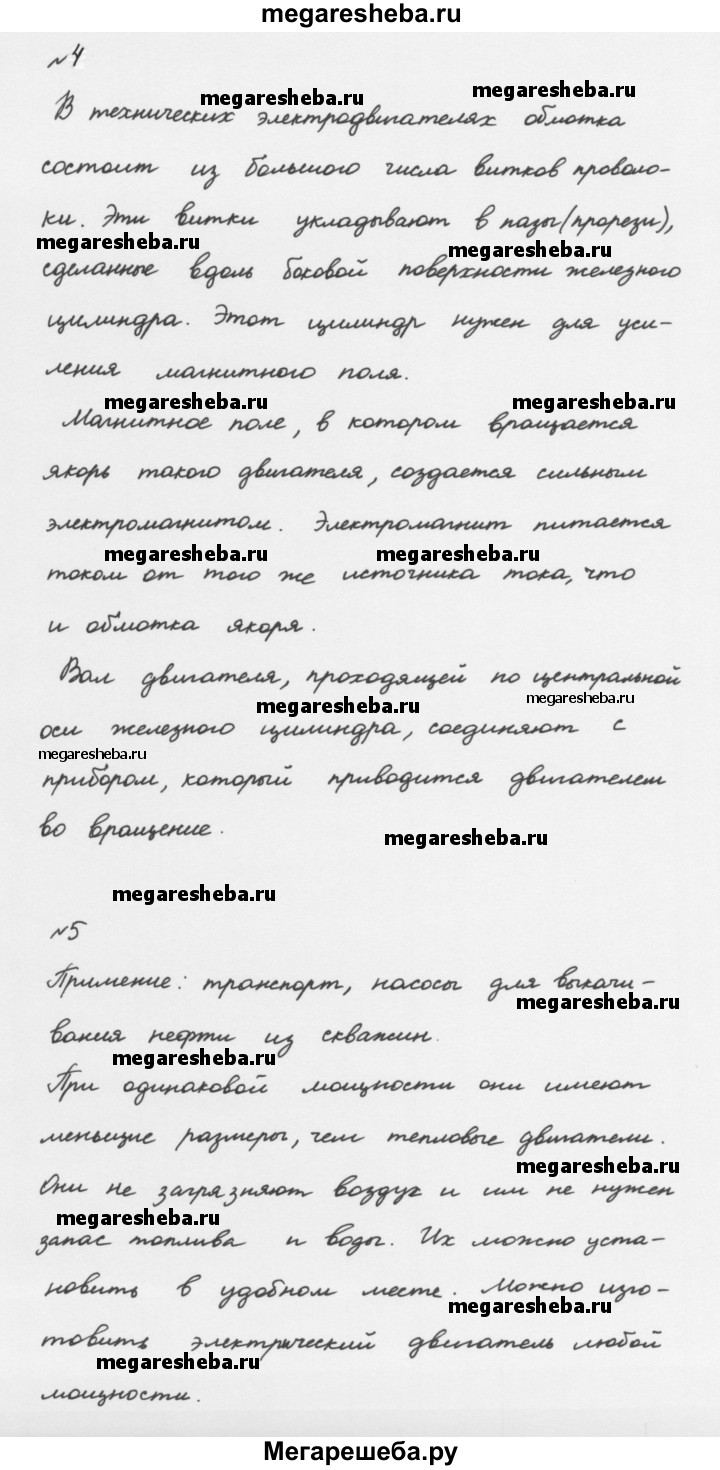 megaresheba.ru
№4
megaresheba.ru megaresheba.ru
В технических электродвигателях обмотка
состоит из большого числа витков проволо-
ки. Эти витки укладывают в пазы (прорези),
megaresheba.ru megaresheba.ru
сделанные вдоль боковой поверхности железного
цилиндра. Этот цилиндр нужен для уси-
ления магнитного поля.
megaresheba.ru megaresheba.ru
Магнитное поле, в котором вращается
якорь такого двигателя, создается сильным
электромагнитом. Электромагнит питается
megaresheba.ru megaresheba.ru
током от того же источника тока, что
и обмотка якоря.
Вал двигателя, проходящей по центральной
megaresheba.ru megaresheba.ru
оси железного цилиндра, соединяют с
megaresheba.ru
прибором, который приводится двигателем
во вращение.
megaresheba.ru
megaresheba.ru
№5
Примение: транспорт, насосы для выкачи-
megaresheba.ru
вания нефти из скважин.
megaresheba.ru
При одинаковой мощности они имеют
меньшие размеры, чем тепловые двигатели.
megaresheba.ru
Они не загрязняют воздух и им не нужен
megaresheba.ru
запас топлива и воды. Их можно уста-
новить в удобном месте. Можно изго-
megaresheba.ru
товить электрический двигатель любой
megaresheba.ru
мощности.
Мегарешеба.ру